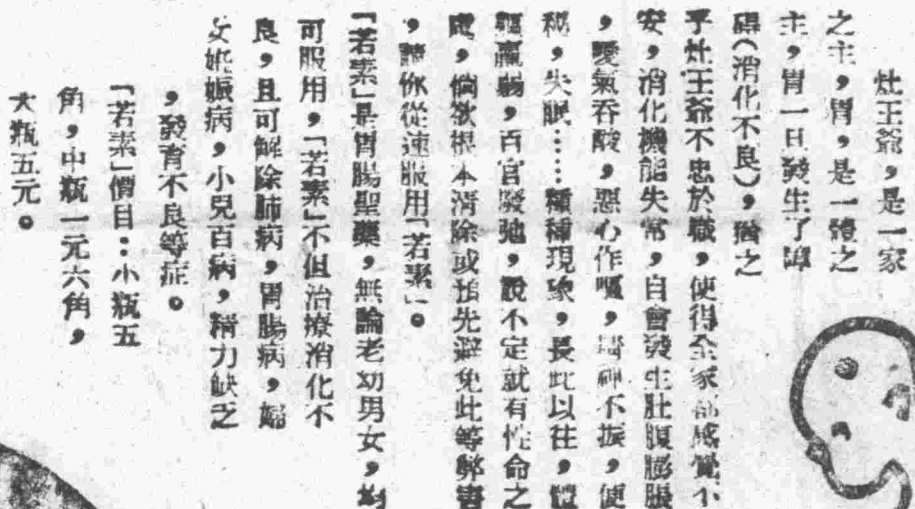 灶王爺，是一家
之主，胃，是一體之
主，胃一日發生了障
碍（消化不良），猶之
乎灶王爺不忠於職，使得全家都感覺不
安，消化機能失常，自會發生肚腹膨脹
，噯氣吞酸，惡心作嘔，精神不振，便
秘，失眠……種種現象，長此以往，體
軀羸弱，百官廢弛，說不定就有性命之
虞，倘欲根本清除或預先避免此等弊害
，請你從速服用「若素」。
「若素」是胃腸聖藥，無論老幼男女，均
可服用，「若素」不但治療消化不
良，且可解除肺病，胃腸病，婦
女姙娠病，小兒百病，精力缺乏
，發育不良等症。
「若素」價目：小瓶五
角，中瓶一元六角，
大瓶五元。